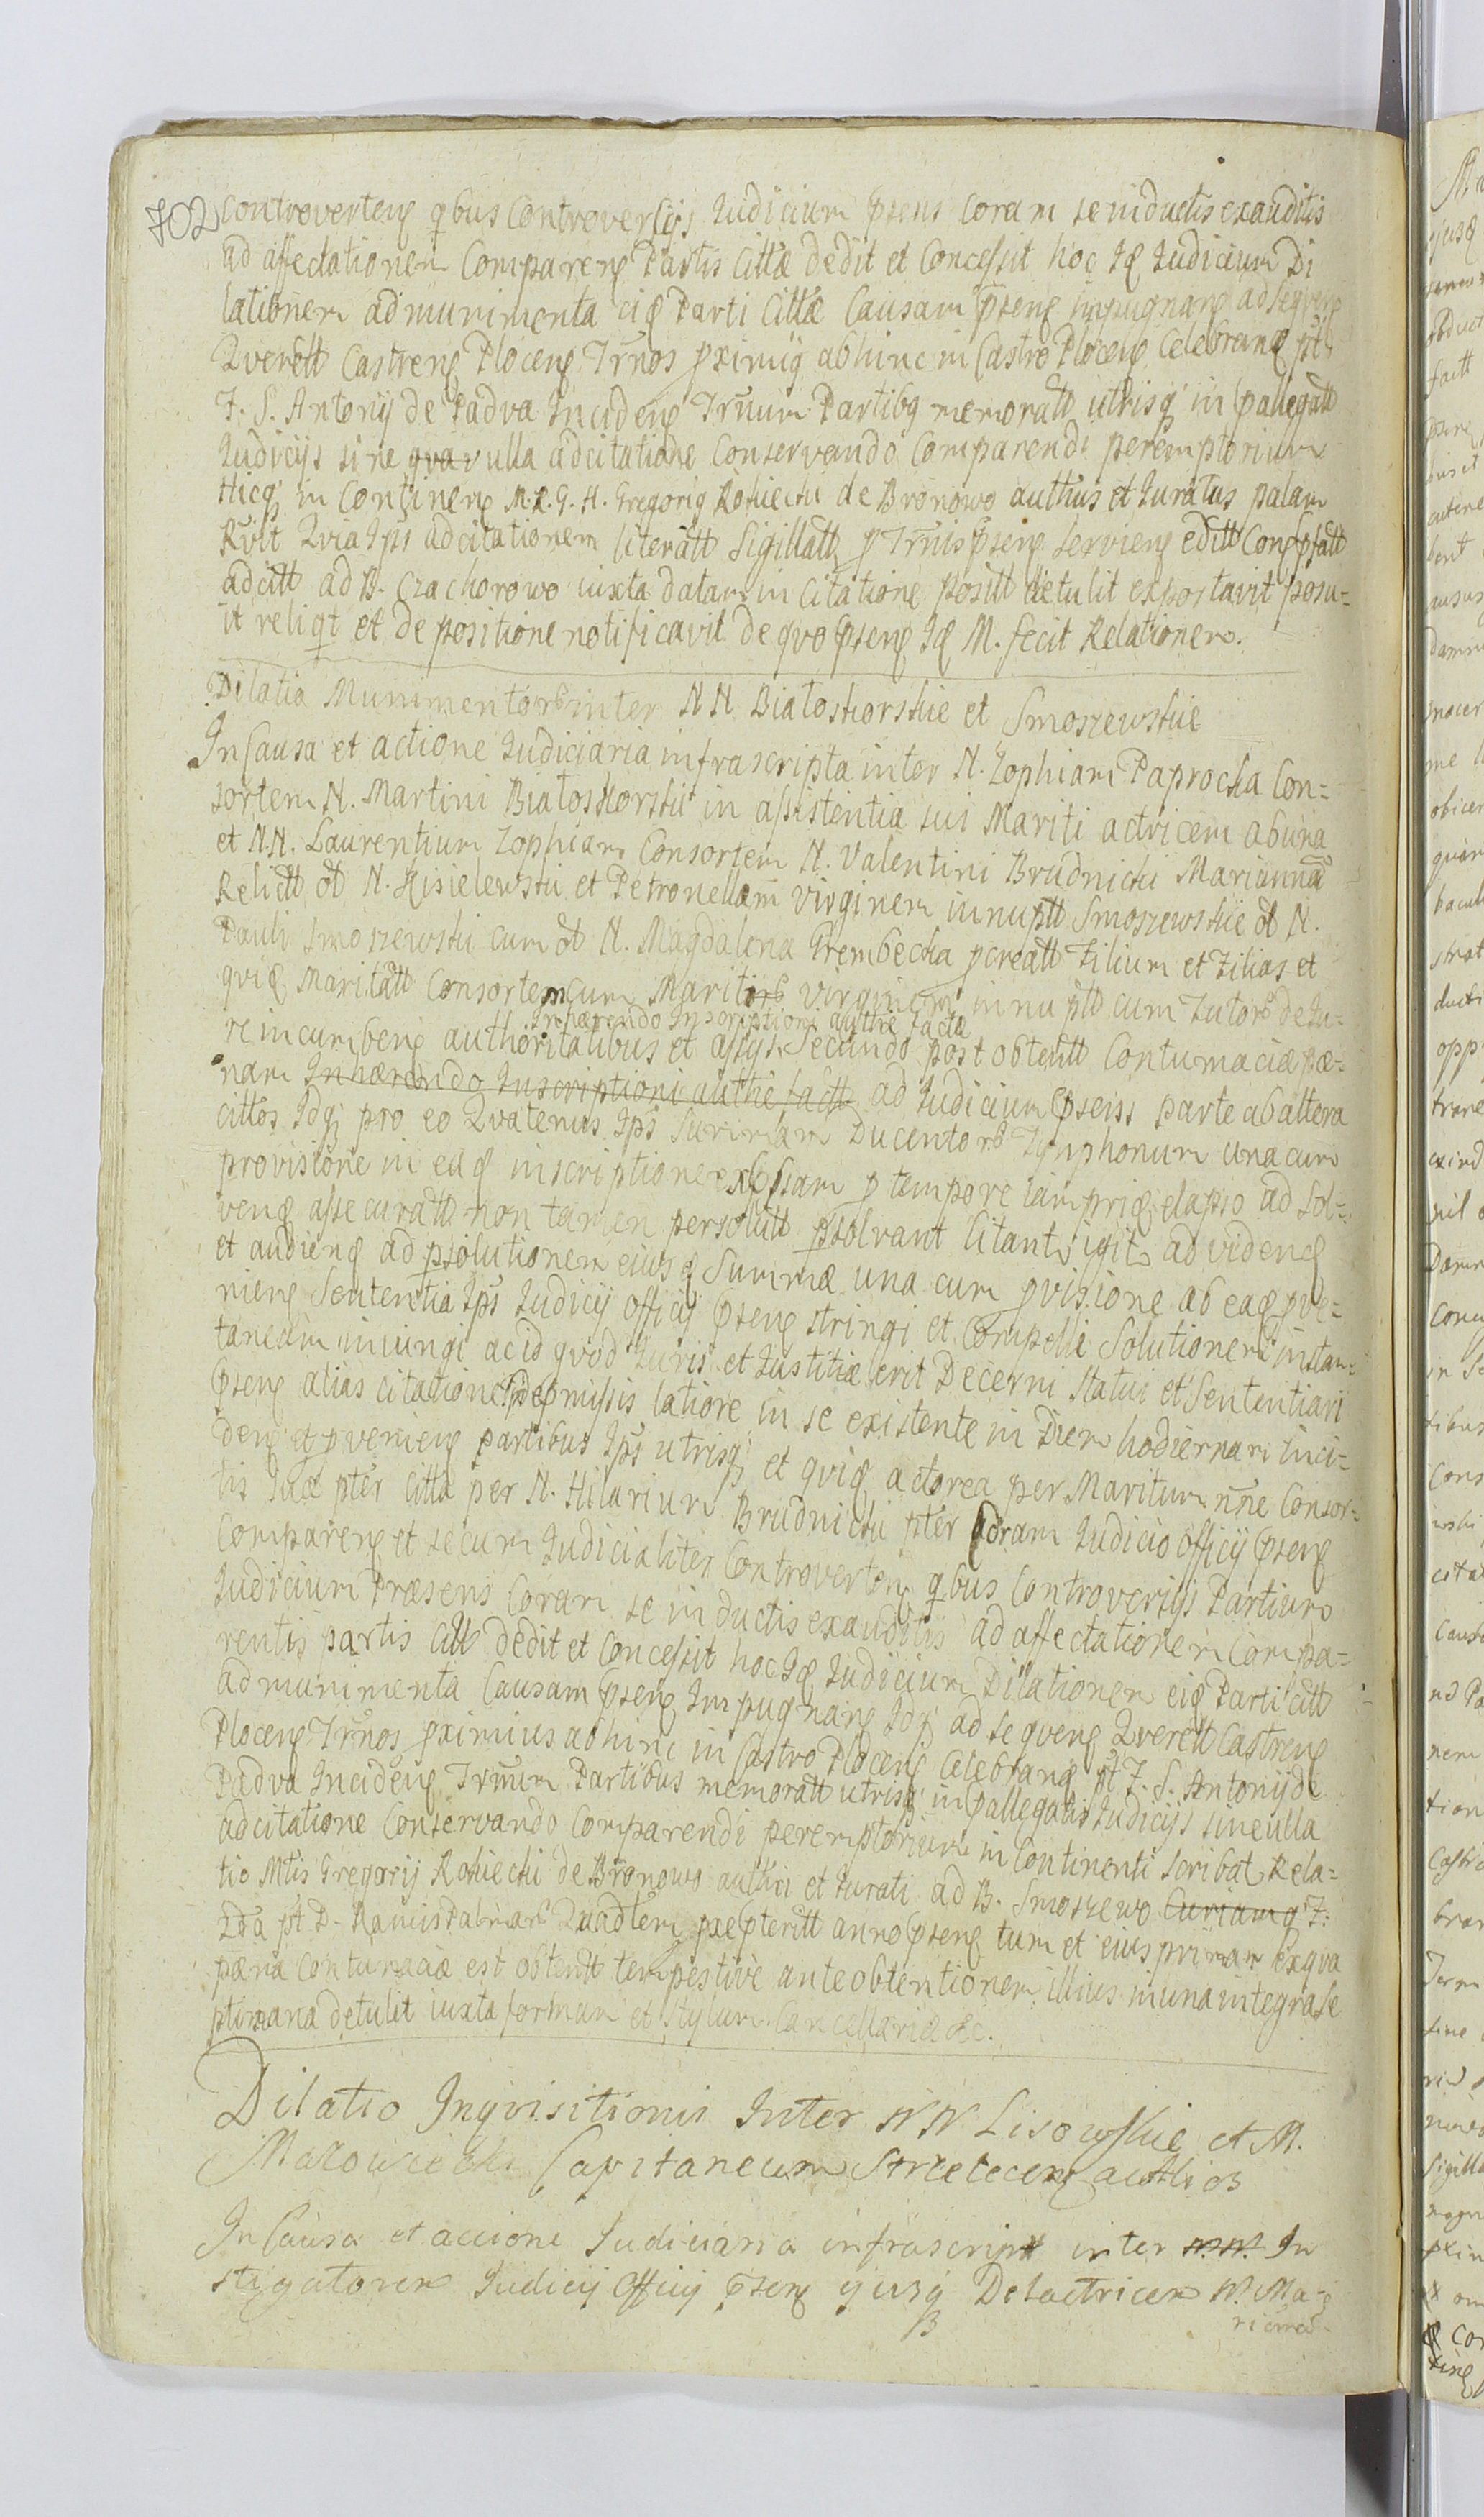 702 controverteng qbus Controversijs Iudicium psens coram se inductis exauditis
ad affectationem Compareng Partis Cittæ dedit et Concessit hoc Iq Iudicium Di
lationem ad munimenta eiq Parti Cittæ Causam pseng impugnang ad seqveng
Qverett Castreng Ploceng Trnos pximiq abhinc in Castro Ploceng Celebrang pt
F. S. Antonij de Padva Incideng Trnum Partibq memoratt utrisq in pallegatt
Iudicijs sine ulla adcitatione Conservando Comparendi peremptorium
Hicq in Contineng M. R. G. H. Gregoriq Rokicki de Bronowo authus et Iuratus palam
Rvlt Qvia Ips adcitationem literatt Sigillatt p Trnis pseng servieng editt
adcitt ad B. Czachorowo iuxta datam in Citatione positt detulit exportavit posu=
it reliqt et de positione notificavit de qvo pseng Iq M. fecit Relationem.
Dilatia Munimentorb inter NN Białoskorskie et Smoszewskie
In Causa et actione Iudiciaria infrascripta inter N. Zophiam Paprocka Con=
sortem N. Martini Białoskorski in assistentia sui Mariti actricem ab una
et NN. Laurentium Zophiam Consortem N. Valentini Brudnicki Marianna
Relictt ol N. Kisielewski et Petronellam virginem innuptt Smoszewskie ol N.
Pauli Smoszewski cum ol N. Magdalena Grembecka pcreatt Filium et Filias et
qviq Maritatt Consortem cum Maritis virginem innuptt cum Tutorb de Iu=
Inhærendo Inscriptioni authe factæ
re incumbeng authoritatibus et assijs. Secundo post obtentt Contumaciæ pæ=
nam Inhærendo Inscriptioni authe factt ad Iudicium pseiss parte ab altera
cittos Idq pro eo Qvatenus Ips Summam Ducentorb Tymphonum una cum
provisione in eaq inscriptione expssam p tempore iam priq elapso ad sol=
veng assecuratt non tamen persolutt psolvant Citant igit ad videng
et audieng ad psolutionem eiusq Summæ una cum pvisione ab eaq pve=
nieng Sententia Ips Iudicij officij pseng stringi et Compelli Solutionem instan=
taneam iniungi ac id qvod Iuris et Iustitiæ erit Decerni Statui et Sententiari
pseng alias citatione depmissis latiore in se existente in Diem hodiernam inci=
deng et pvenieng partibus Ips utrisq et qviq actorea per Maritum nne Consor=
tis suæ pter Citta per N. Hilarium Brudnicki pter Coram Iudicio officij pseng
Compareng et secum Iudicialiter Controverteng qbus Controversijs Partium
Iudicium Præsens Coram se inductis exauditis ad affectationem Compa=
rentis partis Citt dedit et Concessit hoc Iq Iudicium Dilationem eiq Parti Citt
ad munimenta Causam pseng Impugnang Idq ad seqveng Qverett Castreng
Ploceng Trnos pximius abhinc in Castro Ploceng Celebrang pt F. S. Antonij de
Padva Incideng Trnum Partibus memoratt utrisq in pallegatis Iudicijs sine ulla
adcitatione Conservando Comparendi peremptorium in Continenti scribat Rela=
tio Mtis Gregorij Rokicki de Bronowo authri et Iurati ad B. Smoszewo Curiam q F:
2da pt D. Ramis Palmarb anno pseng tum et eius primam Exqva
pæna contumaciæ est obtentt tempestive ante obtentionem illius in una integra se
ptimana detulit iuxta formam et stylum Cancellariæ &c.
Dilatio Inqvisitionis Inter NN Lisowskie et M.
Mazowiecki Capitaneum
In Causa et accione Iudiciaria infrascript inter N.N. In
stigatorem Iudicij Officij pseng ejusq Delactricem N. Ma=
rianna